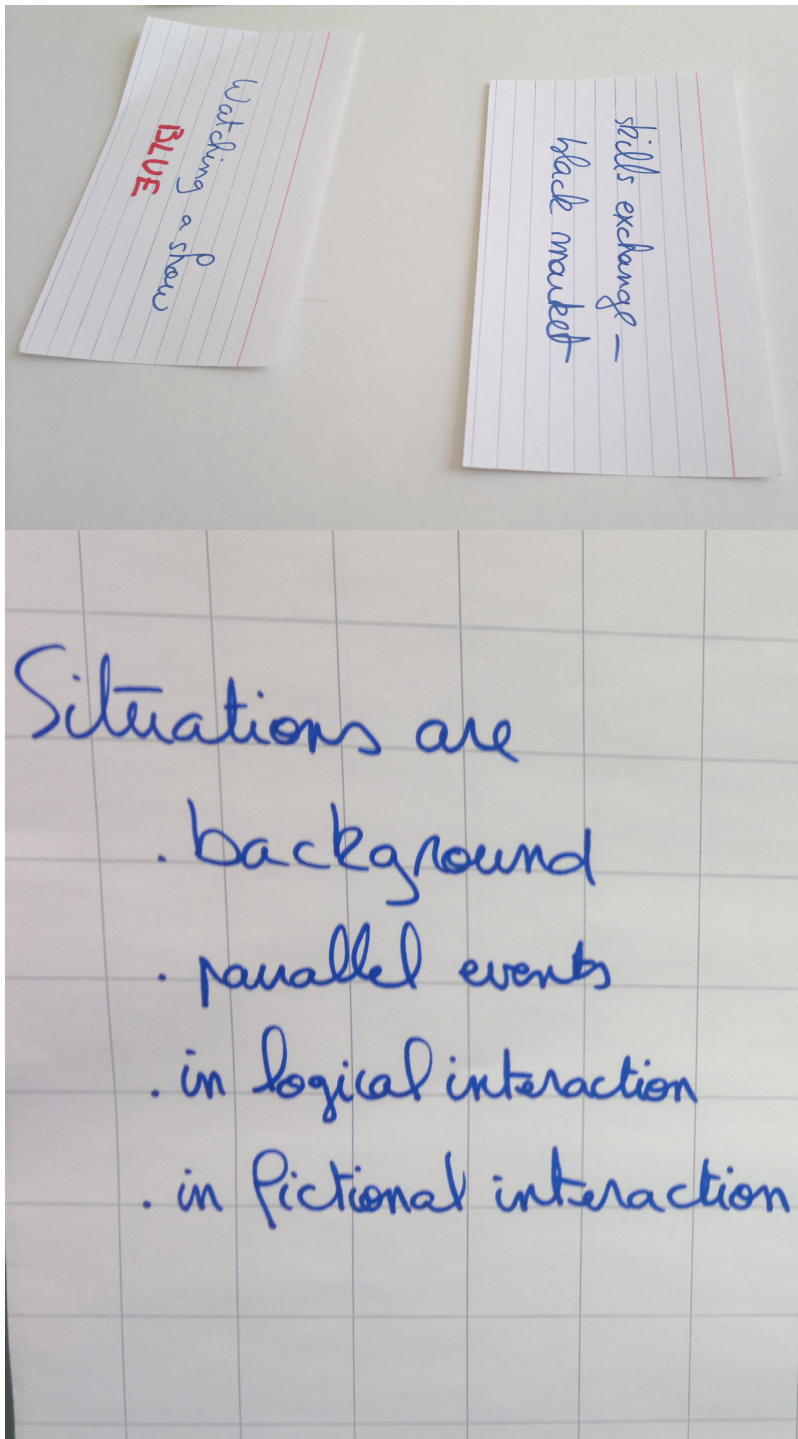 Watching a show
BLUE
skills exchange –
black market
Situations are
. background
. parallel events
. in logical interaction
. in fictional interaction